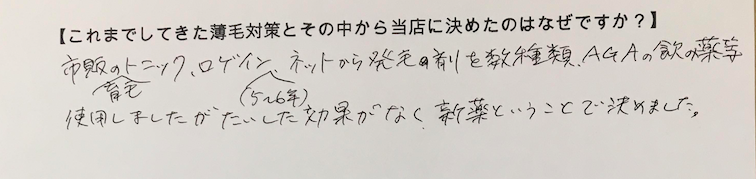 【これまでしてきた薄毛対策とその中から当店に決めたのはなぜですか？】
市販の育毛トニック、ロゲイン(5〜6年)、ネットから発毛剤を数種類、AGAの飲み薬等
使用しましたがたいした効果がなく、新薬ということで決めました。